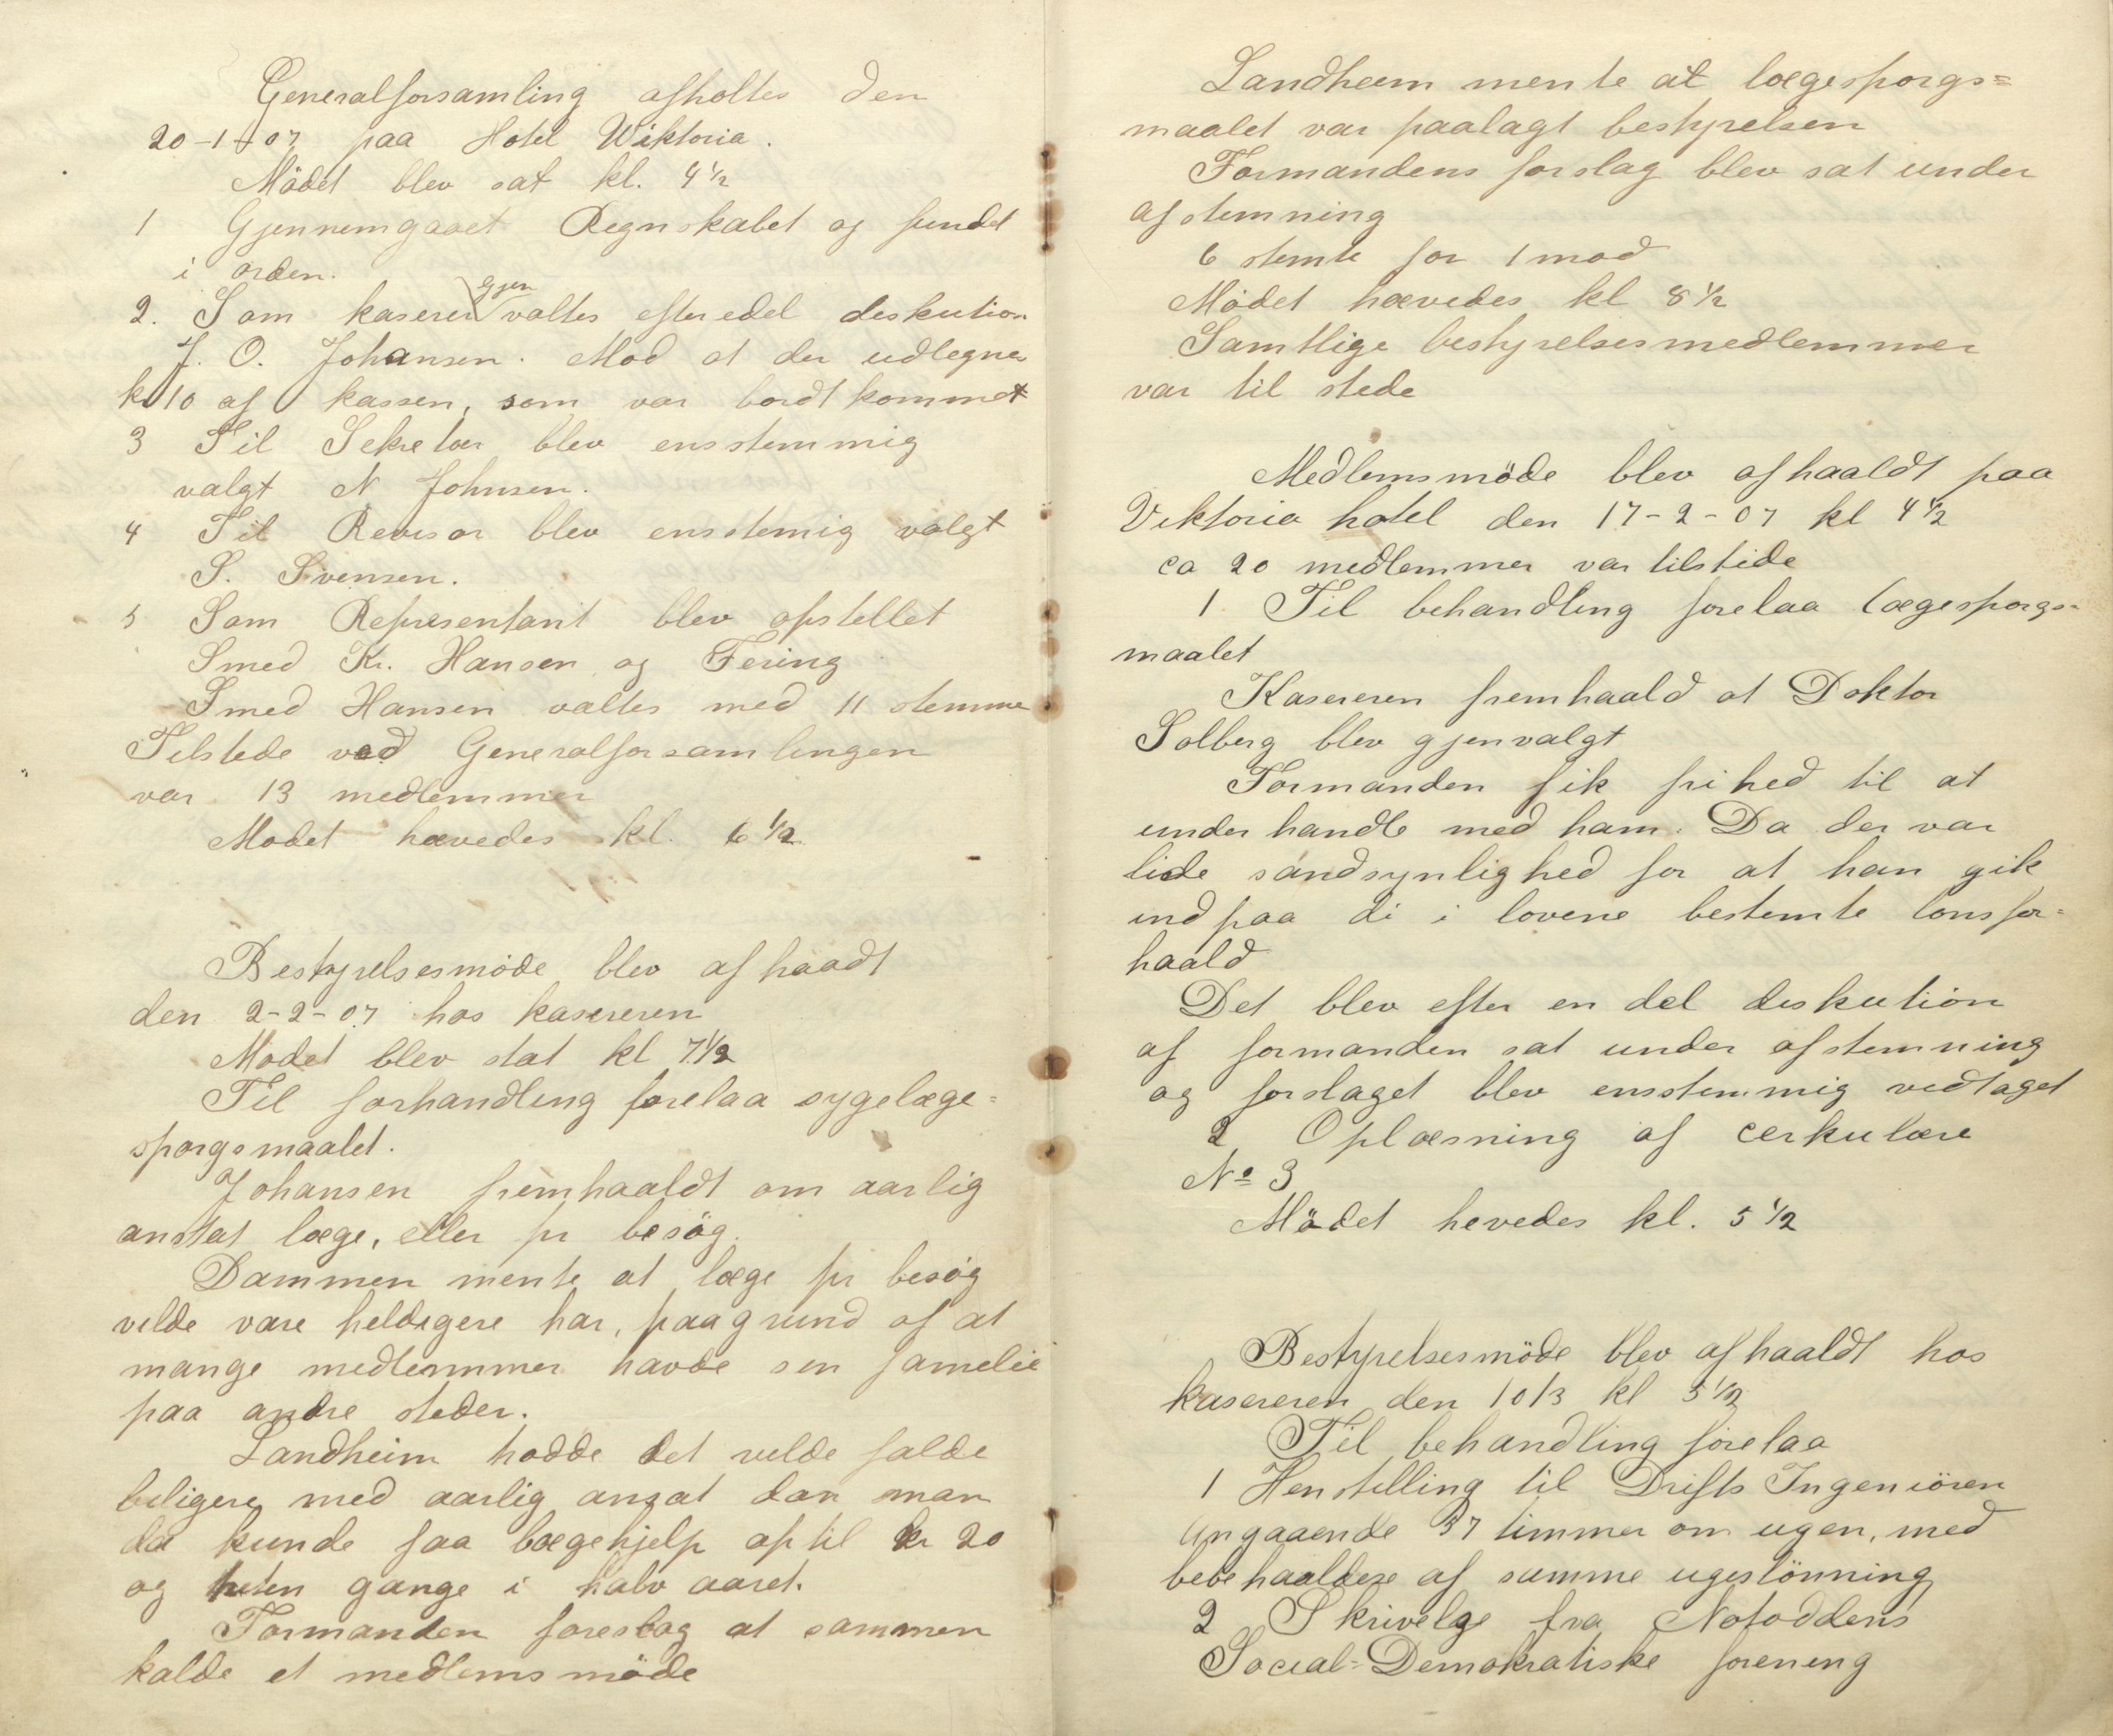 Generalforsamling afholtes den
20-1-07 paa Hotel Wiktoria.
Mödet blev sat kl. 4 1/2
1 Gjennemgaaet Regnskabet og fundet
i orden.
2. Som kaserer gjen valtes efter edel deskution
J. O. Johansen. Mod at der udlegnes
kr 10 af kassen, som var bordt kommet
3 Til Sekretær blev ensstemmig
valgt N Johnsen.
4 Til Revisor blev ensstemig valgt
S. Svensen.
5 Som Representant blev opstellet
Smed Kr. Hansen og Fering
Smed Hansen valtes med 11 stemme
Tilstede ved Generalforsamlingen
var 13 medlemmer
Modet hævedes kl. 6 1/2
Bestyrelsesmöde blev afhaadt
den 2-2-07 hos kasereren
Modet blev stat kl 7 1/2
Til forhandling forelaa sygelæge=
sporgsmaalet.
Johansen fremhaaldt om aarlig
anstat læge, eller pr besög.
Dammen mente at læge pr besög
velde være heldegere har, paa grund af at
mange medlemmer havde sin famelie
paa andre steder.
Landheim hodde det velde falde
beligere med aarlig ansat dan man
da kunde faa lægehjelp optil kr 20
og gange i halv aaret.
Formanden foreslog at sammen
kalde et medlems möde
Landheim mente at lægesporgs=
maalet var paalagt bestyrelsen
Formandens forslag blev sat under
afstemning
6 stemte for 1 mod
Mödet hævedes kl 8 1/2
Samtlige bestyrelsesmedlemmer
var til stede
Medlemsmöde blev afhaaldt paa
Viktoria hotel den 17-2-07 kl 4 1/2
ca 20 medlemmer var tilstede
1 Til behandling forelaa lægesporgs=
maalet
Kasereren fremhaald at Doktor
Solberg blev gjenvalgt
Formanden fik frihed til at
underhandle med ham. Da der var
lide sandsynlighed for at han gik
ind paa di i lovene bestemte lonsfor=
haald
Det blev efter en del deskution
af formanden sat under afstemning
og forslaget blev ensstemmig vedtaget
2 Oplæsning af cerkulære
No 3
Mödet hevedes kl. 5 1/2
Bestyrelsesmöde blev afhaaldt hos
kasereren den 10/3 kl 5 1/2
Til behandling forelaa
1 Henstelling til Drifts Ingeniören
Angaaende 57 timmer om ugen, med
bebehaaldere af samme ugeslönning
2 Skrivelse fra Notoddens
Social=Demokratiske forening